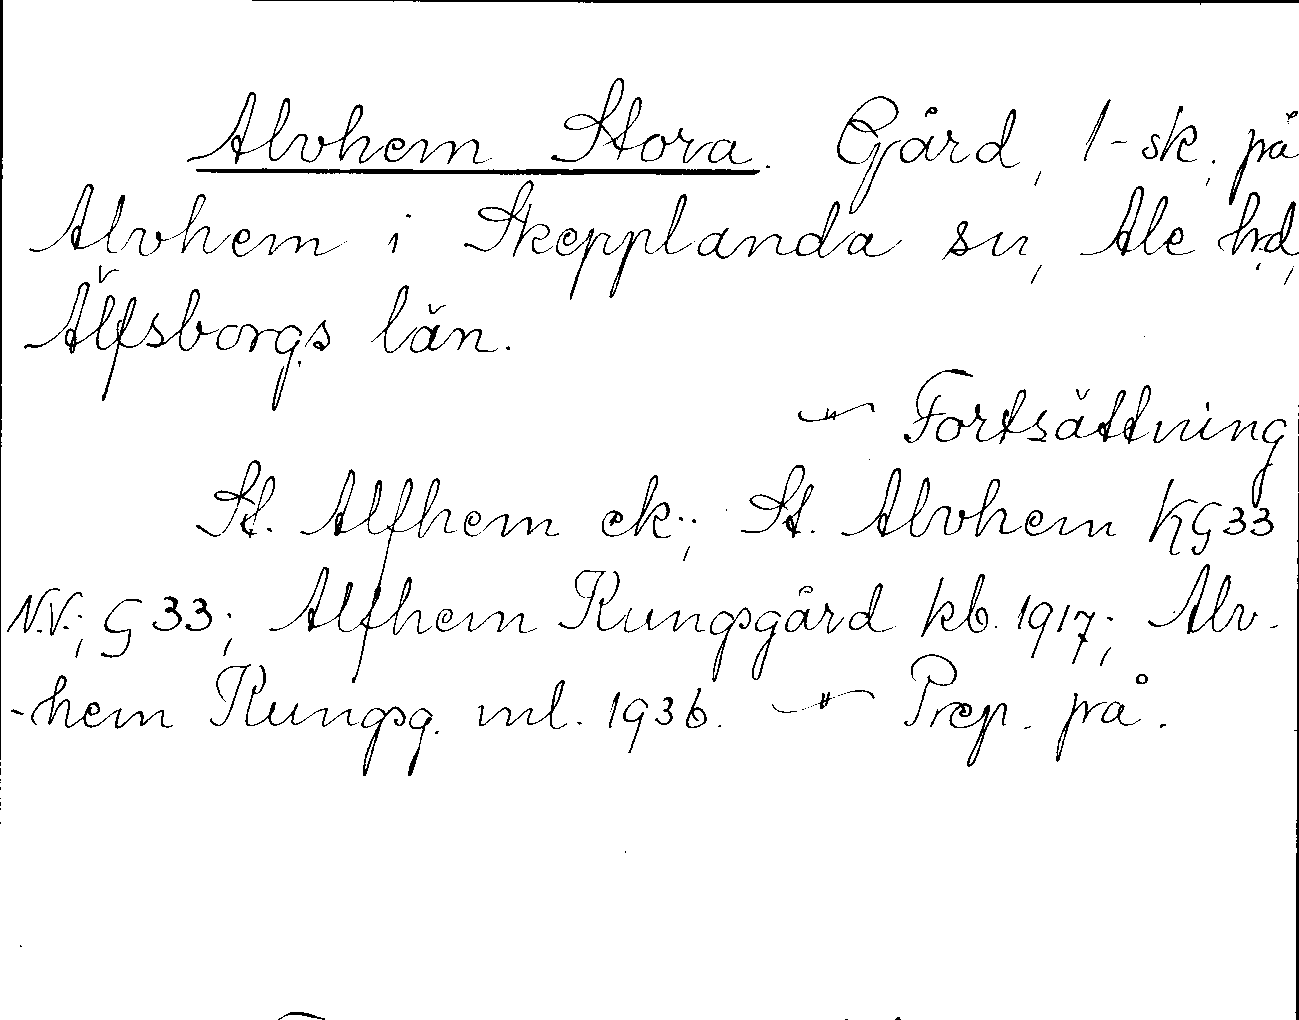 Alvhem Stora. Gård, 1-sk. på
Alvhem i Skepplanda sn, Ale hd,
Älfsborgs län.
— " — Fortsättning
St. Alfhem ek.; St. Alvhem KG33
N.V.; G33; Alfhem Kungsgård kb. 1917; Alv-
-hem Kungsg. ml. 1936. — " — Prep. på.